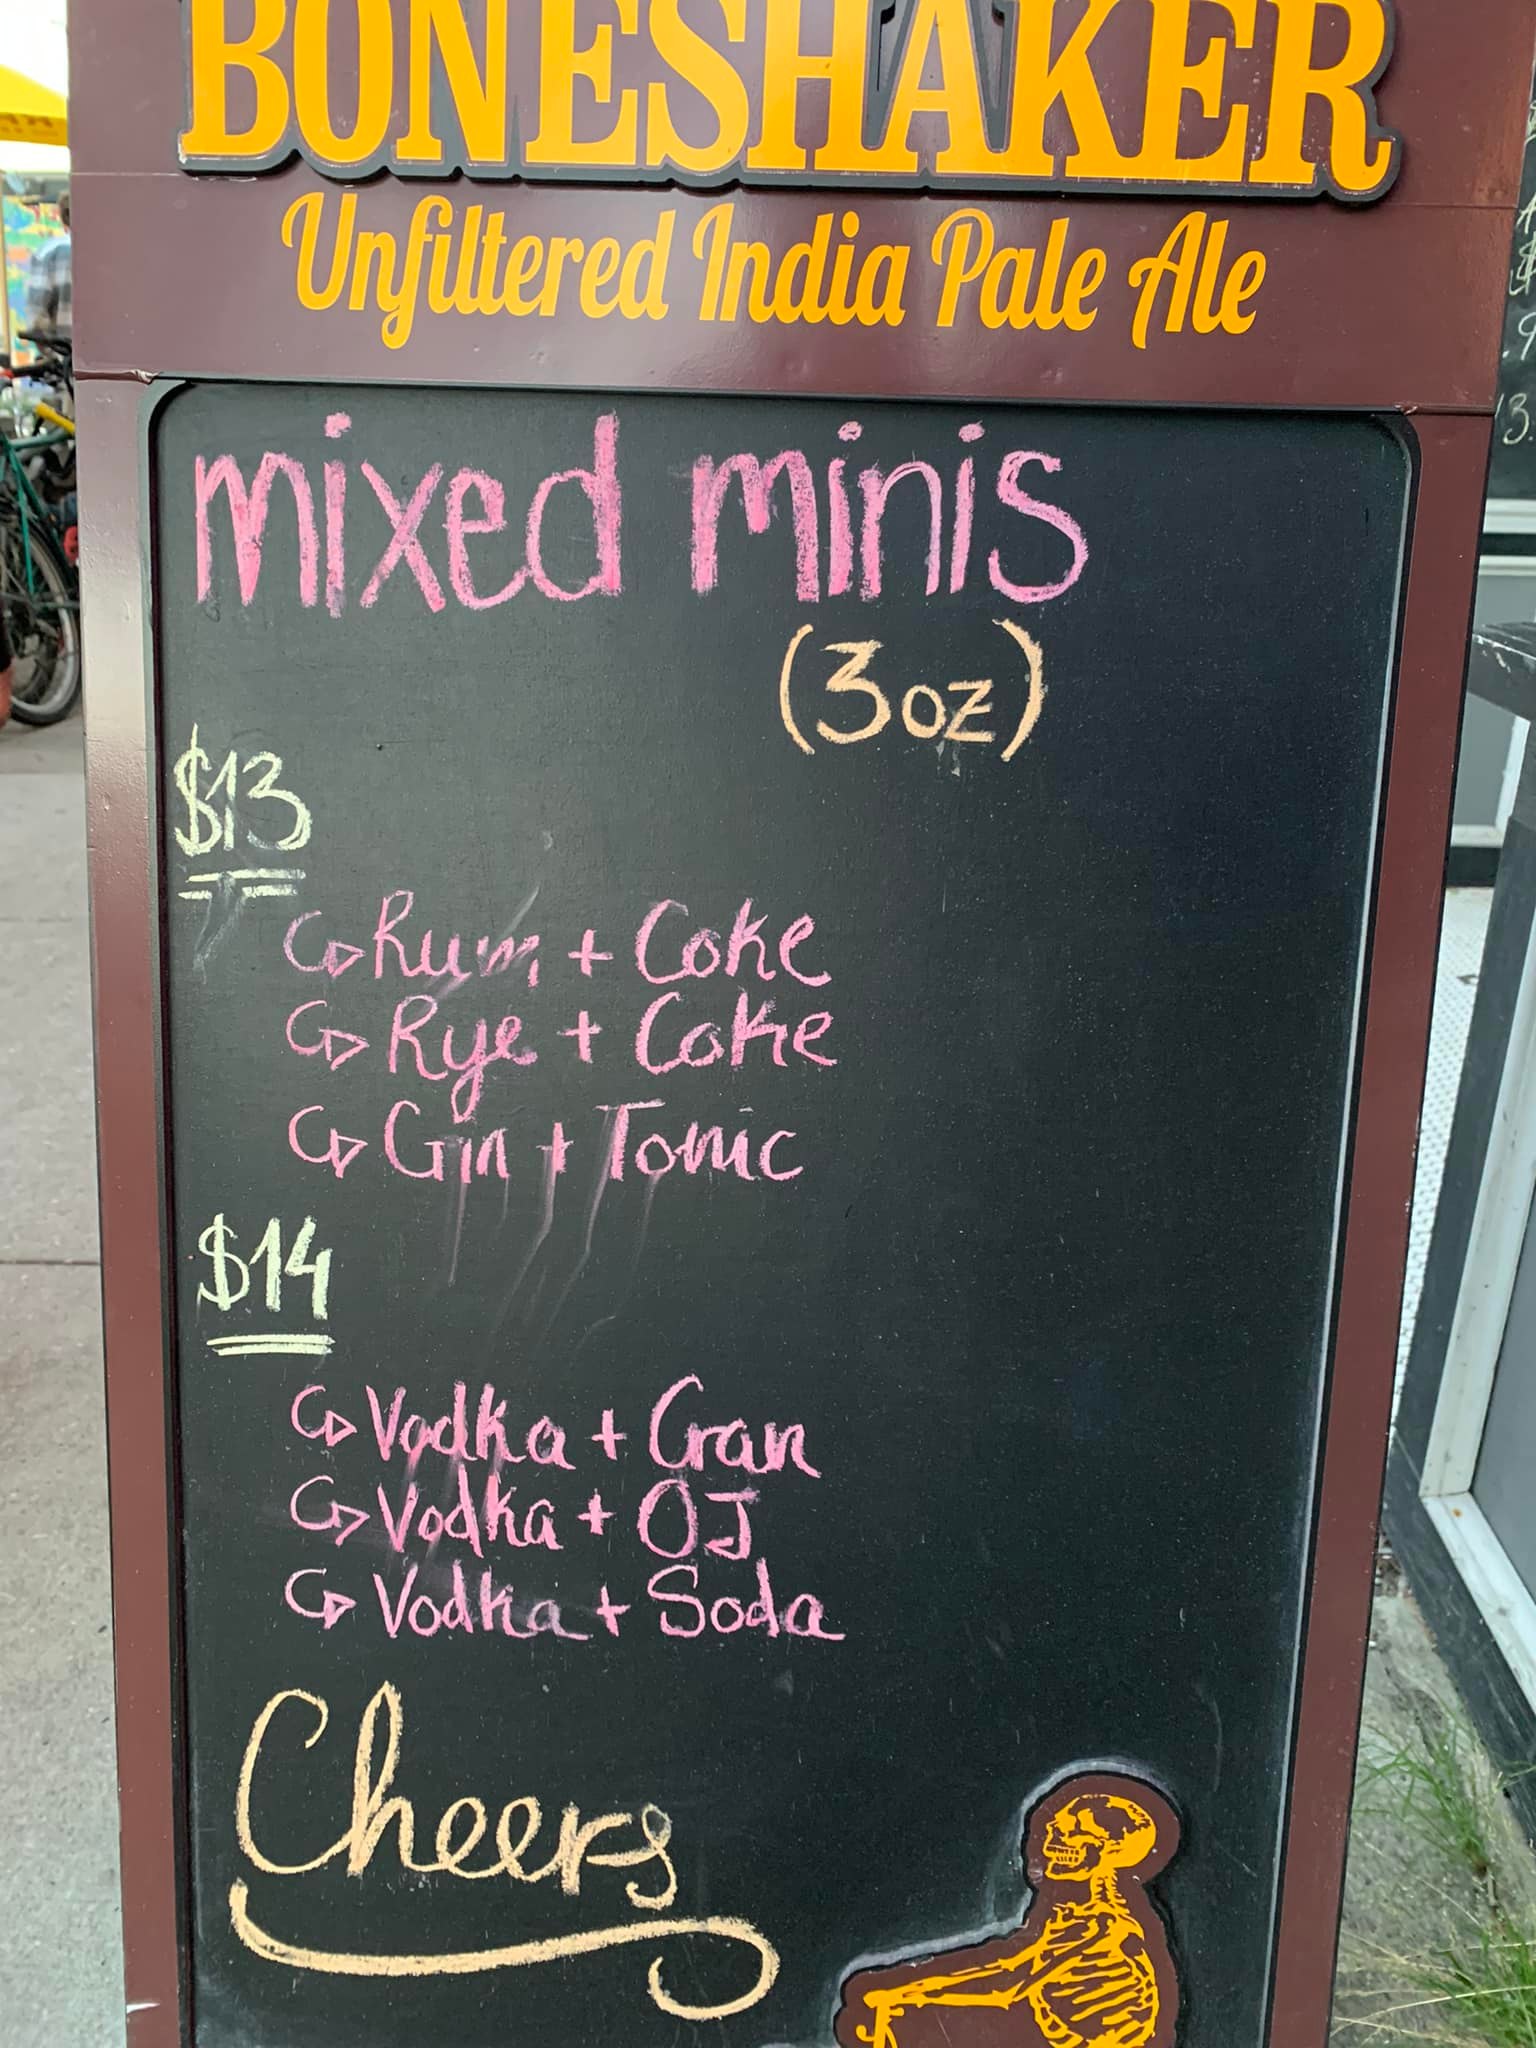 BONESHAKER
Unfiltered India Pale Ale
mixed minis
(3oz)
$13
Rum + Coke
Rye + Coke
Gin + Tonic
$14
Vodka + Cran
Vodka + OJ
Vodka + Soda
Cheers